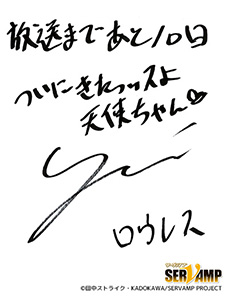 放送まであと10日
ついにきたッスよ
天使ちゃん♡
ロウレス
サーヴァンプ
SERVAMP
©田中ストライク・KADOKAWA/SERVAMP PROJECT